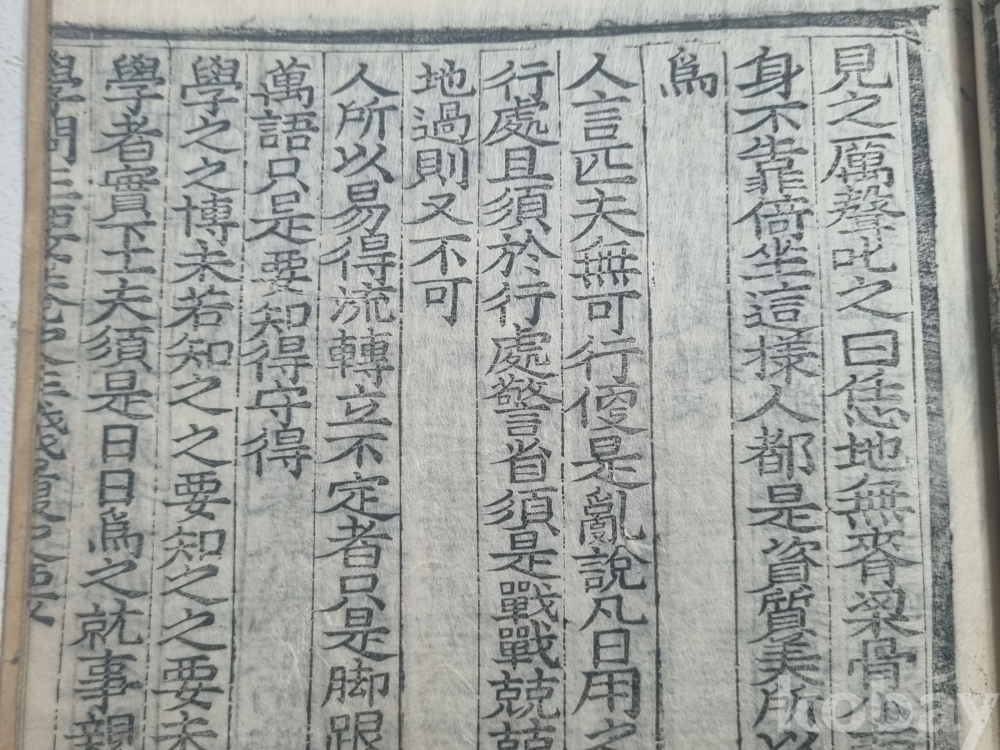 見之厲聲叱之曰恁地無脊梁骨小
身不靠倚坐這㨾人都是資質美所以
爲
人言匹夫無可行便是亂說凡日用之
行處且須於行處警省須是戰戰兢兢
地過則又不可
人所以易得流轉立不定者只是脚跟
萬語只是要知得守得
學之之博未若知之之要知之之要未
學者實下工夫須是日日爲之就事親
學問
kobay